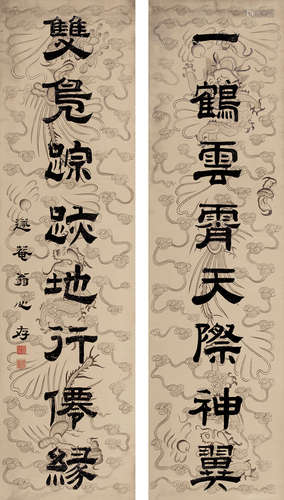 一鶴雲霄天際神翼
雙鳧蹤跡地行僊緣
遂菴翁心存